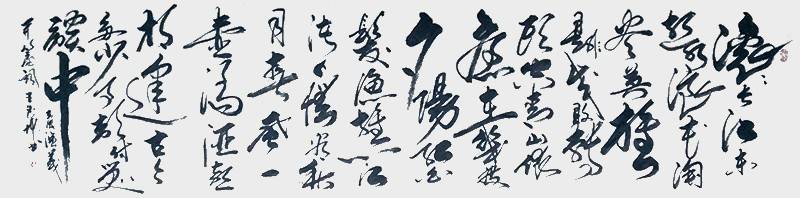 滚〻长江东
逝水浪花淘
尽英雄
是非成败转
头空青山依
旧在几度
夕陽红白
髮渔樵江
渚上惯看秋
月春风一
壶浊酒喜
相逢古今
多少事都付笑
谈中
三国演义
开篇词